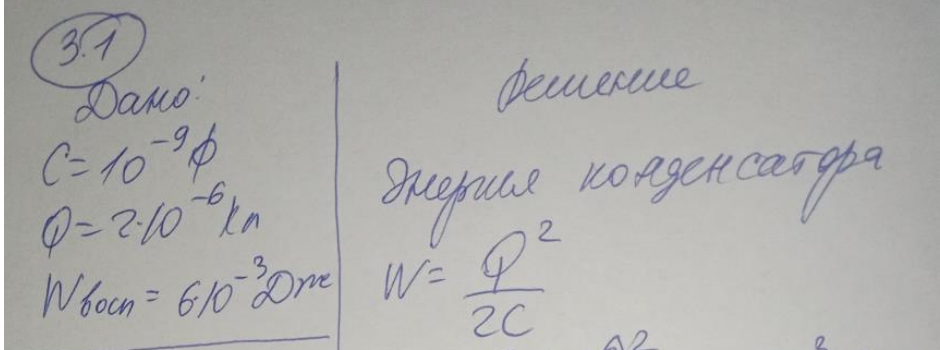 3.1
Дано:
C=10⁻⁹ Ф
Q=2·10⁻⁶ Кл
Wвосп=6·10⁻³ Дж
Решение
Энергия конденсатора
W=Q²/2C